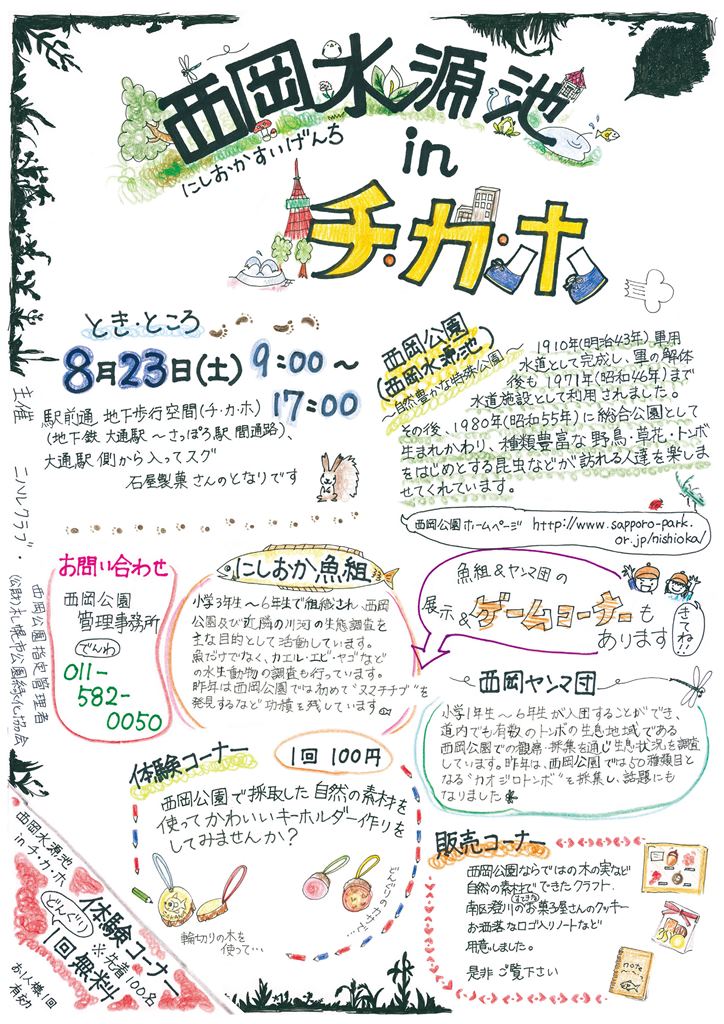 西岡水源池
にしおかすいげんち
in
チ・カ・ホ
とき・ところ
8月23日(土) 9:00～
17:00
駅前通 地下歩行空間(チ・カ・ホ)
(地下鉄 大通駅～さっぽろ駅 間通路)、
大通駅側から入ってスグ
石屋製菓さんのとなりです
西岡公園
(西岡水源池)
～自然豊かな特殊公園～
1910年(明治43年)軍用
水道として完成し、軍の解体
後も1971年(昭和46年)まで
水道施設として利用されました。
その後、1980年(昭和55年)に総合公園として
生まれかわり、種類豊富な野鳥・草花・トンボ
をはじめとする昆虫などが訪れる人達を楽しま
せてくれています。
西岡公園ホームページ http://www.sapporo-park.
or.jp/nishioka/
主催 ニハルクラブ・
西岡公園指定管理者
(公財)札幌市公園緑化協会
お問い合わせ
西岡公園
管理事務所
でんわ
011-
582-
0050
にしおか魚組
小学3年生～6年生で組織され、西岡
公園及び近隣の川河の生態調査を
主な目的として活動しています。
魚だけでなく、カエル・エビ・ヤゴなど
の水生動物の調査も行っています。
昨年は西岡公園では初めて“ヌマチチブ”を
発見するなど功積を残しています
魚組&ヤンマ団の
展示&ゲームコーナーも
あります
きてね!!
西岡ヤンマ団
小学1年生～6年生が入団することができ、
道内でも有数のトンボの生息地域である
西岡公園での観察・採集を通じ生息状況を調査
しています。昨年は、西岡公園では50種類目と
なる“カオジロトンボ”を採集し、話題にも
なりました
体験コーナー
1回 100円
西岡公園で採取した自然の素材を
使ってかわいいキーホルダー作りを
してみませんか?
輪切りの木を
使って…
どんぐりのカサで…
販売コーナー
西岡公園ならではの木の実など
自然の素材でできたクラフト
南区澄川のお菓子屋さんのクッキー
お洒落なロゴ入りノートなど
用意しました。
是非ご覧下さい
note
西岡水源池
in チ・カ・ホ
どんぐり
体験コーナー
※先着100名
1回無料
お1人様1回
有効